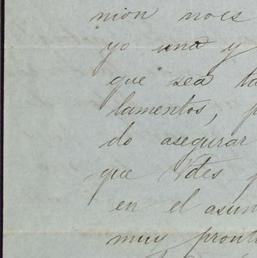 nion no es
yo una y
que sea ta
lamentos, p
do asegurar
que Vdes p
en el asun
muy pront